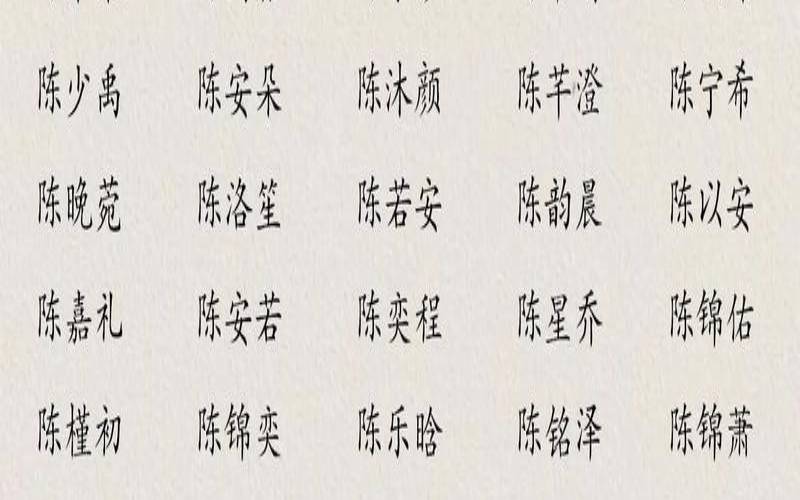 陈少禹 陈安朵 陈沐颜 陈芊澄 陈宁希
陈晚菀 陈洛笙 陈若安 陈韵晨 陈以安
陈嘉礼 陈安若 陈奕程 陈星乔 陈锦佑
陈槿初 陈锦奕 陈乐晗 陈铭泽 陈锦萧